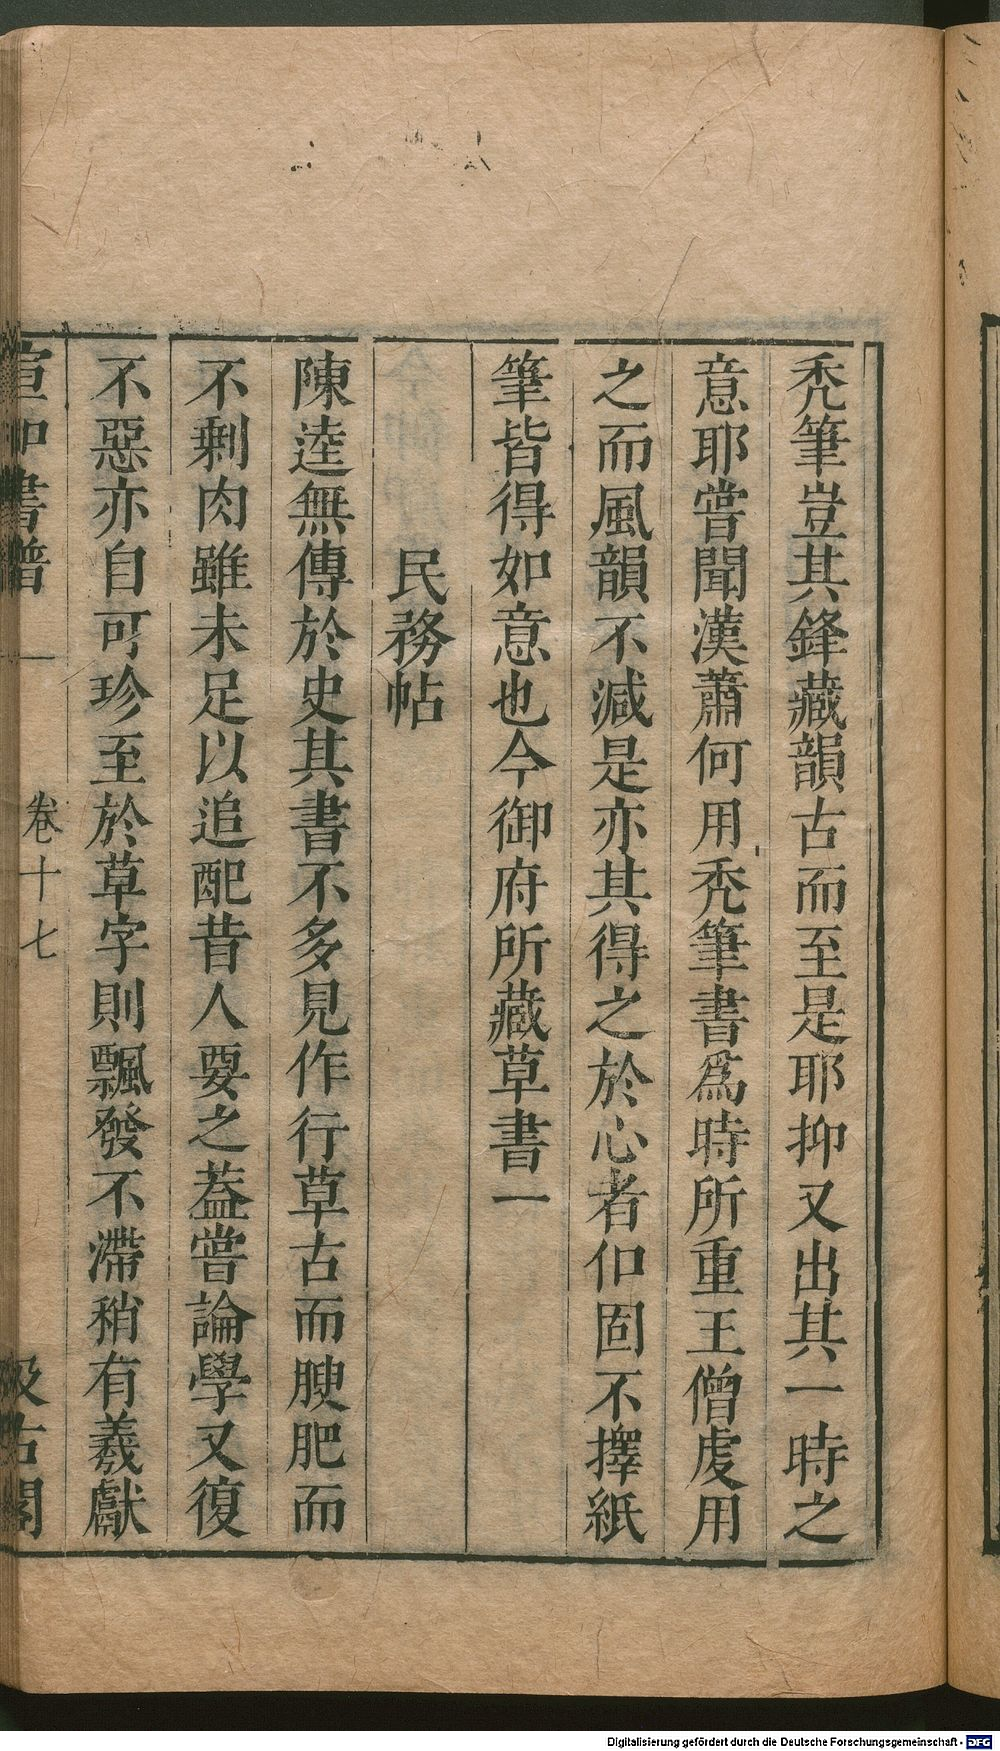 禿筆豈其鋒藏韻古而至是耶抑又出其一時之
意耶嘗聞漢蕭何用禿筆書爲時所重王僧虔用
之而風韻不減是亦其得之於心者仰固不擇紙
筆皆得如意也今御府所藏草書一
民務帖
陳逵無傳於史其書不多見作行草古而腴肥而
不剩肉雖未足以追配昔人要之葢嘗論學又復
不惡亦自可珍至於草字則飄發不滯稍有羲獻
宣和書譜 卷十七 汲古閣
Digitalisierung gefördert durch die Deutsche Forschungsgemeinschaft - DFG